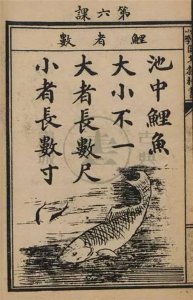 第六課
鯉者數
池中鯉魚
大小不一
大者長數尺
小者長數寸